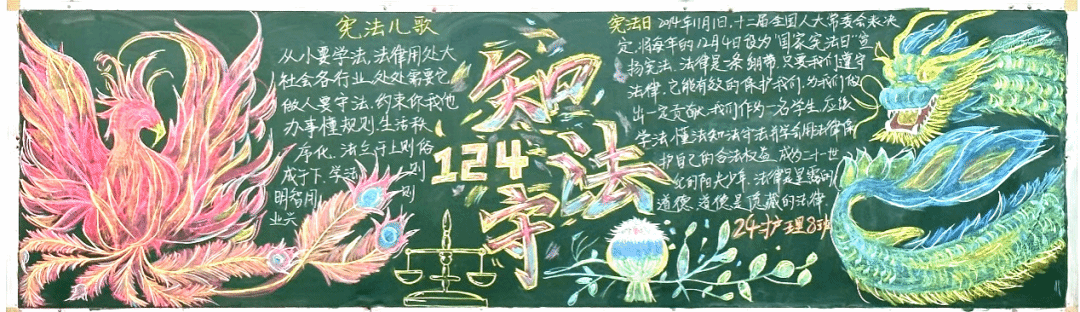 宪法儿歌
从小要学法,法律用处大
社会各行业,处处需要它
做人要守法,约束你我他
办事懂规则,生活秩
序化,法立于上则俗
成于下,学法 则
明智用 则
业兴
124
知法
守
宪法日 2014年11月1日,十二届全国人大常委会表决
定,将每年的12月4日设为"国家宪法日"宣
扬宪法,法律是一条绷带,只要我们遵守
法律,它能有效的保护我们,为我们做
出一定贡献,我们作为一名学生,应该
学法,懂法知法守法和学会用法律保
护自己的合法权益,成为二十一世
纪的阳光少年,法律是显露的
道德,道德是隐藏的法律.
24护理8班